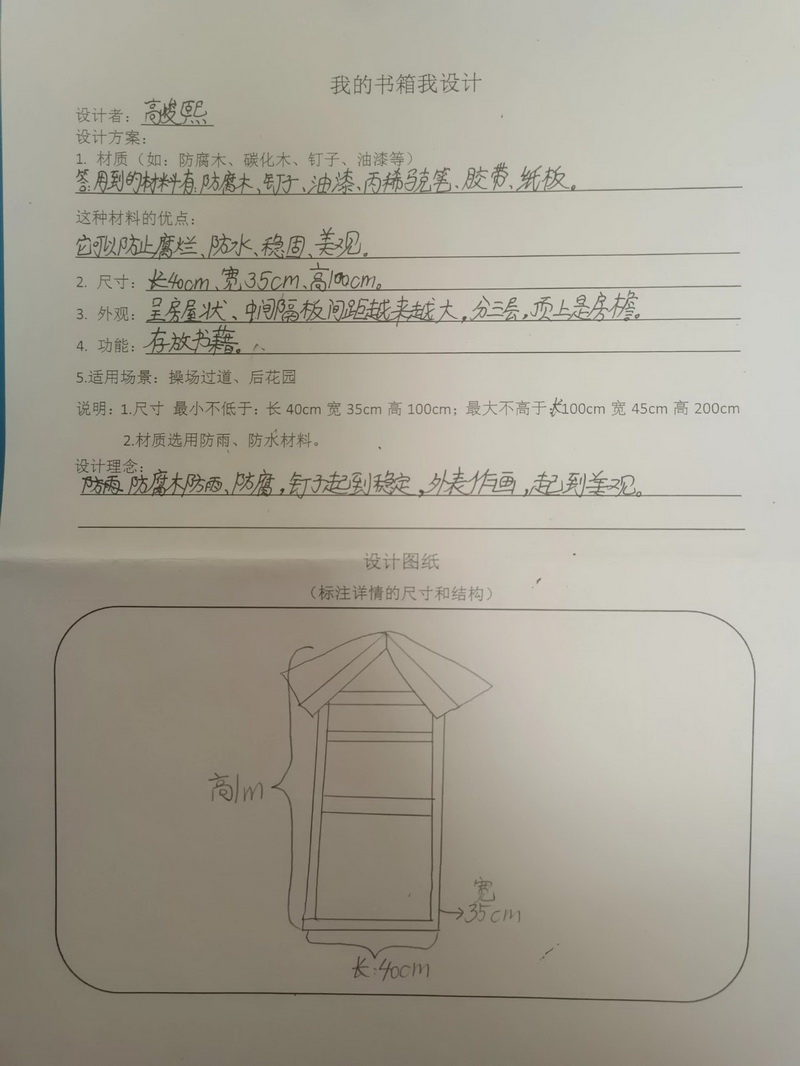 我的书箱我设计
设计者：高峻熙
设计方案：
1. 材质（如：防腐木、碳化木、钉子、油漆等）
答：用到的材料有：防腐木、钉子、油漆、丙稀马克笔、胶带、纸板。
这种材料的优点：
它可以防止腐烂、防水、稳固、美观。
2. 尺寸：长40cm、宽35cm、高100cm。
3. 外观：呈房屋状、中间隔板间距越来越大，分三层，顶上是房檐。
4. 功能：存放书籍。
5.适用场景：操场过道、后花园
说明：1.尺寸 最小不低于：长 40cm 宽 35cm 高 100cm；最大不高于长100cm 宽 45cm 高 200cm
2.材质选用防雨、防水材料。
设计理念：
防腐木防雨、防腐，钉子起到稳定，外表作画，起到美观。
设计图纸
（标注详情的尺寸和结构）
高1m
宽
35cm
长:40cm